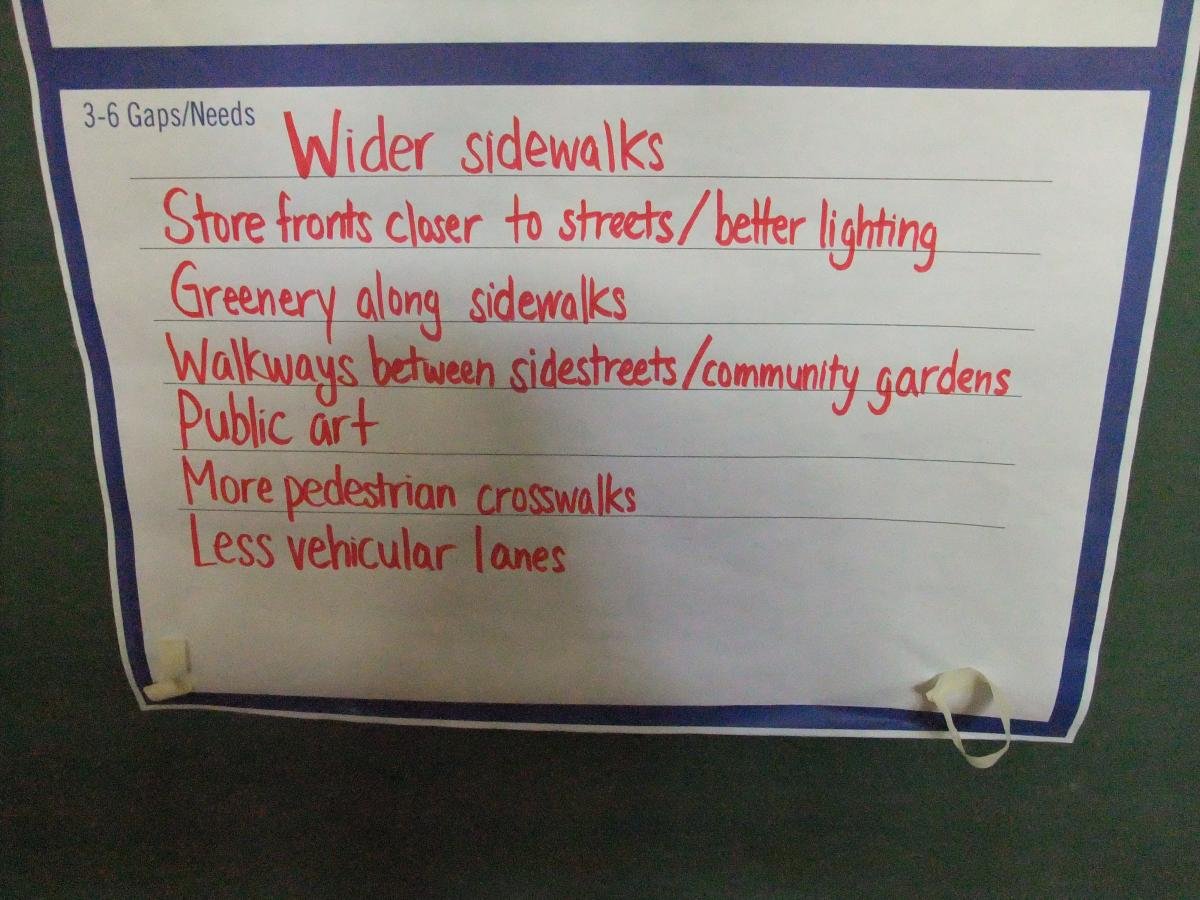 3-6 Gaps/Needs
Wider sidewalks
Store fronts closer to streets/better lighting
Greenery along sidewalks
Walkways between sidestreets/community gardens
Public art
More pedestrian crosswalks
Less vehicular lanes